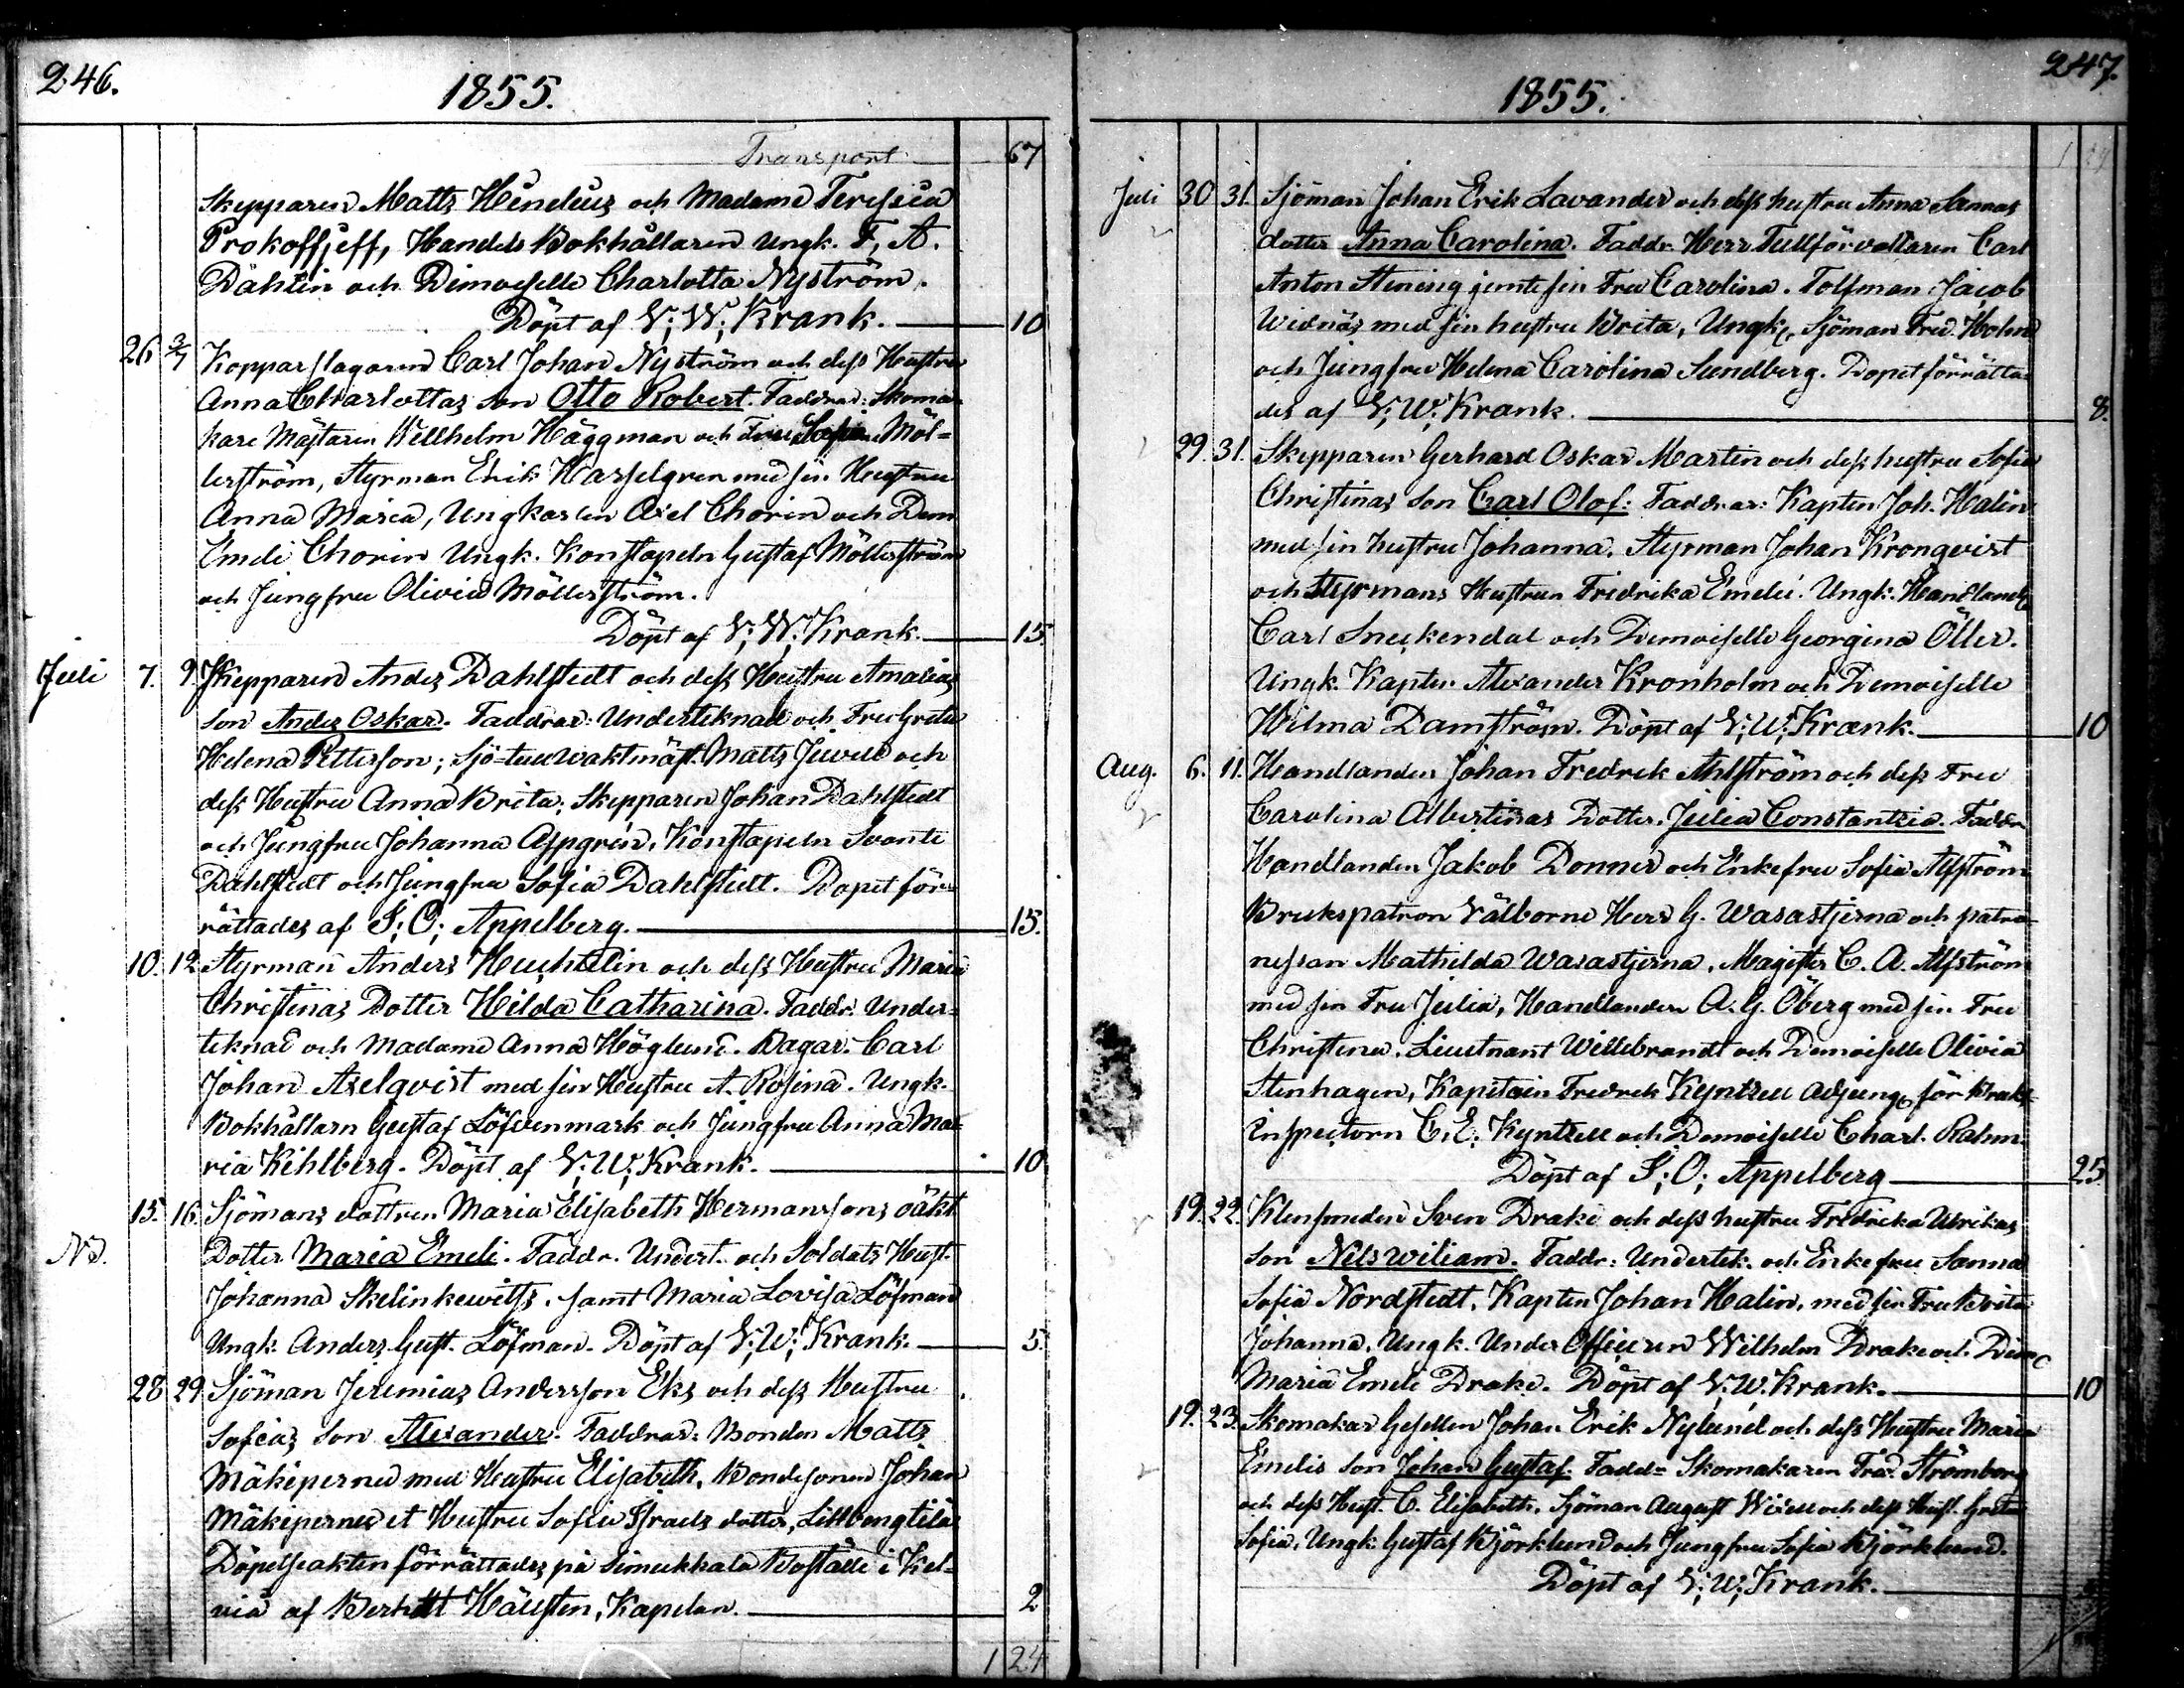 246.
1855.
Transport 67
Skepparen Matts Hendeus och Madame Teresia
Prokoffjeff, Handels Bokhållaren Ungk. F. A.
Dahlin och Demoiselle Charlotta Nyström.
Döpt af V; W; Krank. 10
26 2/7 Kopparslagaren Carl Johan Nyström och dess Hustru
Anna Charlottas son Otto Robert. Faddrar: Skoma-
kare Mästaren Willhelm Häggman och Fru Sofia Möl-
lerström, Styrman Erik Hasselgren med sin Hustru
Anna Maria, Ungkarlen Axel Chorin och Dem
Emeli Chorin Ungk. Konstapeln Gustaf Möllerström
och Jungfru Olivia Möllerström.
Döpt af V; W; Krank. 15
Juli 7. 9. Skepparen Anders Dahlstedt och dess Hustru Amalias
son Anders Oskar. Faddrar: Underteknad och Fru Greta
Helena Petterson; Sjö-tullvaktmäst. Matts Juvell och
dess Hustru Anna Brita; Skepparen Johan Dahlstedt
och Jungfru Johanna Aspgrén, Konstapeln Svante
Dahlstedt och Jungfru Sofia Dahlstedt. Dopet för-
rättades af S; O; Appelberg. 15.
10. 12 Styrman Anders Huchtelin och dess Hustru Maria
Christinas Dotter Hilda Catharina. Faddr: Under-
teknad och Madame Anna Höglund. Bagar. Carl
Johan Axelqvist med sin Hustru A. Rosina. Ungk.
Bokhållarn Gustaf Löfvenmark och Jungfru Anna Ma-
ria Kihlberg. Döpt af V; W; Krank. 10
15. 16. Sjömans dottren Maria Elisabeth Hermanssons oäkt
NB. Dotter Maria Emeli. Faddr. Undert. och Soldats Hust.
Johanna Skelinkewitss. samt Maria Lovisa Löfman
Ungk. Anders Gust. Löfman. Döpt af V; W; Krank. 5.
28 29 Sjöman Jeremias Andersson Eks och dess Hustru
Sofias son Alexander. Faddrar: Bonden Matts
Mäkipernu med Hustru Elisabeth, Bondesonen Johan
Mäkipernu et Hustru Sofia Israels dotter,
Döpelseakten förrättades på Simukkala Boställe i Kel-
viå af Berhdtt Hällsten, Kapelan. 2
1 24
247.
1855.
Juli 30 31. Sjöman Johan Erik Lavander och dess hustru Anna Sannas
dotter Anna Carolina. Faddr. Herr Tullförvaltaren Carl
Anton Stening jemte sin Fru Carolina. Tolfman Jacob
Widnäs med sin hustru Brita, Ungk. Sjöman Fred. Holm
och Jungfru Helena Carolina Sundberg. Dopet förrätta-
des af V; W; Krank. 8.
29. 31. Skepparen Gerhard Oskar Martin och dess hustru Sofia
Christinas son Carl Olof: Faddrar: Kapten Joh. Halin
med sin hustru Johanna. Styrman Johan Kronqvist
och Styrmans Hustrun Fredrika Emelie. Ungk. Handland
Carl Sneckendal och Demoiselle Georgina Öller.
Ungk. Kapten Alexander Kronholm och Demoiselle
Hilma Damström. Döpt af V; W; Krank. 10
Aug. 6. 11. Handlanden Johan Fredrek Ahlström och dess Fru
Carolina Albertinas Dotter. Julia Constantia. Faddr
Handlanden Jakob Donner och Enkefru Sofia Alfström
Brukspatron Välborne Herr G. Wasastjerna och patro-
nessan Mathilda Wasastjerna, Magister C. A. Alfström
med sin Fru Julia, Handlanden A. G. Öberg med sin Fru
Christina. Lieutnant Willebrandt och Demoiselle Olivia
Stenhagen, Kapitain Fredrek Kyntzell Adjung för
inspectorn C. E. Kyntzell och Demoiselle Charl. Rahm.
Döpt af S; O; Appelberg 25.
19. 22. Klensmeden Sven Drake och dess hustru Fredrika Ulrikas
son Nils Wiliam. Faddr: Undertek. och Enkefru Sanna
Sofia Nordstedt, Kapten Johan Halin, med sin Fru Brita
Johanna. Ungk. Under Officeren Wilhelm Drake och Dem
Maria Emeli Drake. Döpt af V; W. Krank. 10
19. 23. Skomakar Gesellen Johan Erik Nylund och dess Hustru Maria
Emelis son Johan Gustaf. Faddr Skomakaren Fred. Strömberg
och dess Hust. C. Elisabeth. Sjöman August och dess Hust. Greta
Sofia, Ungk. Gustaf Björklund och Jungfru Sofia Björklund.
Döpt af V; W; Krank.